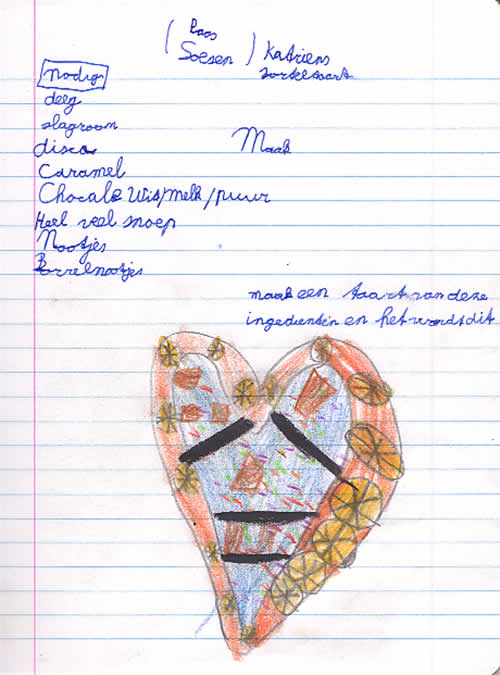 ( Soesen ) Katriens
nodig
deeg
slagroom
disco
Maak
Caramel
Chocale wit/melk/puur
Heel veel snoep
Nootjes
Borrelnootjes
maak een taart van deze
ingedienten en het wordt dit